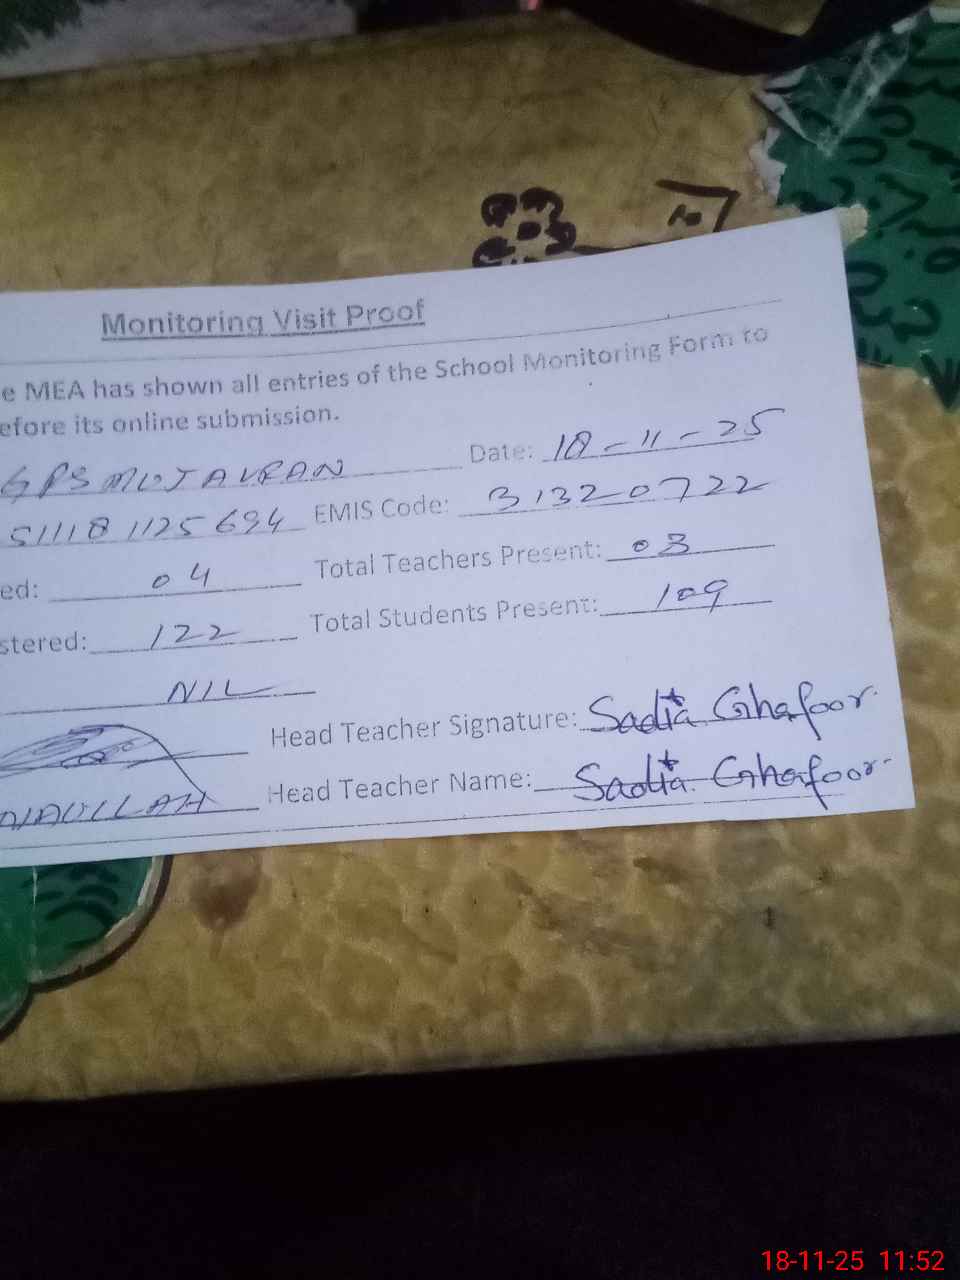 Monitoring Visit Proof
e MEA has shown all entries of the School Monitoring Form to
efore its online submission.
GPS MUJAVRAN Date: 18-11-25
511181125694 EMIS Code: 31320722
ed: 04 Total Teachers Present: 03
stered: 122 Total Students Present: 109
NIL
Head Teacher Signature: Sadia Ghafoor
Head Teacher Name: Sadia Ghafoor
18-11-25 11:52